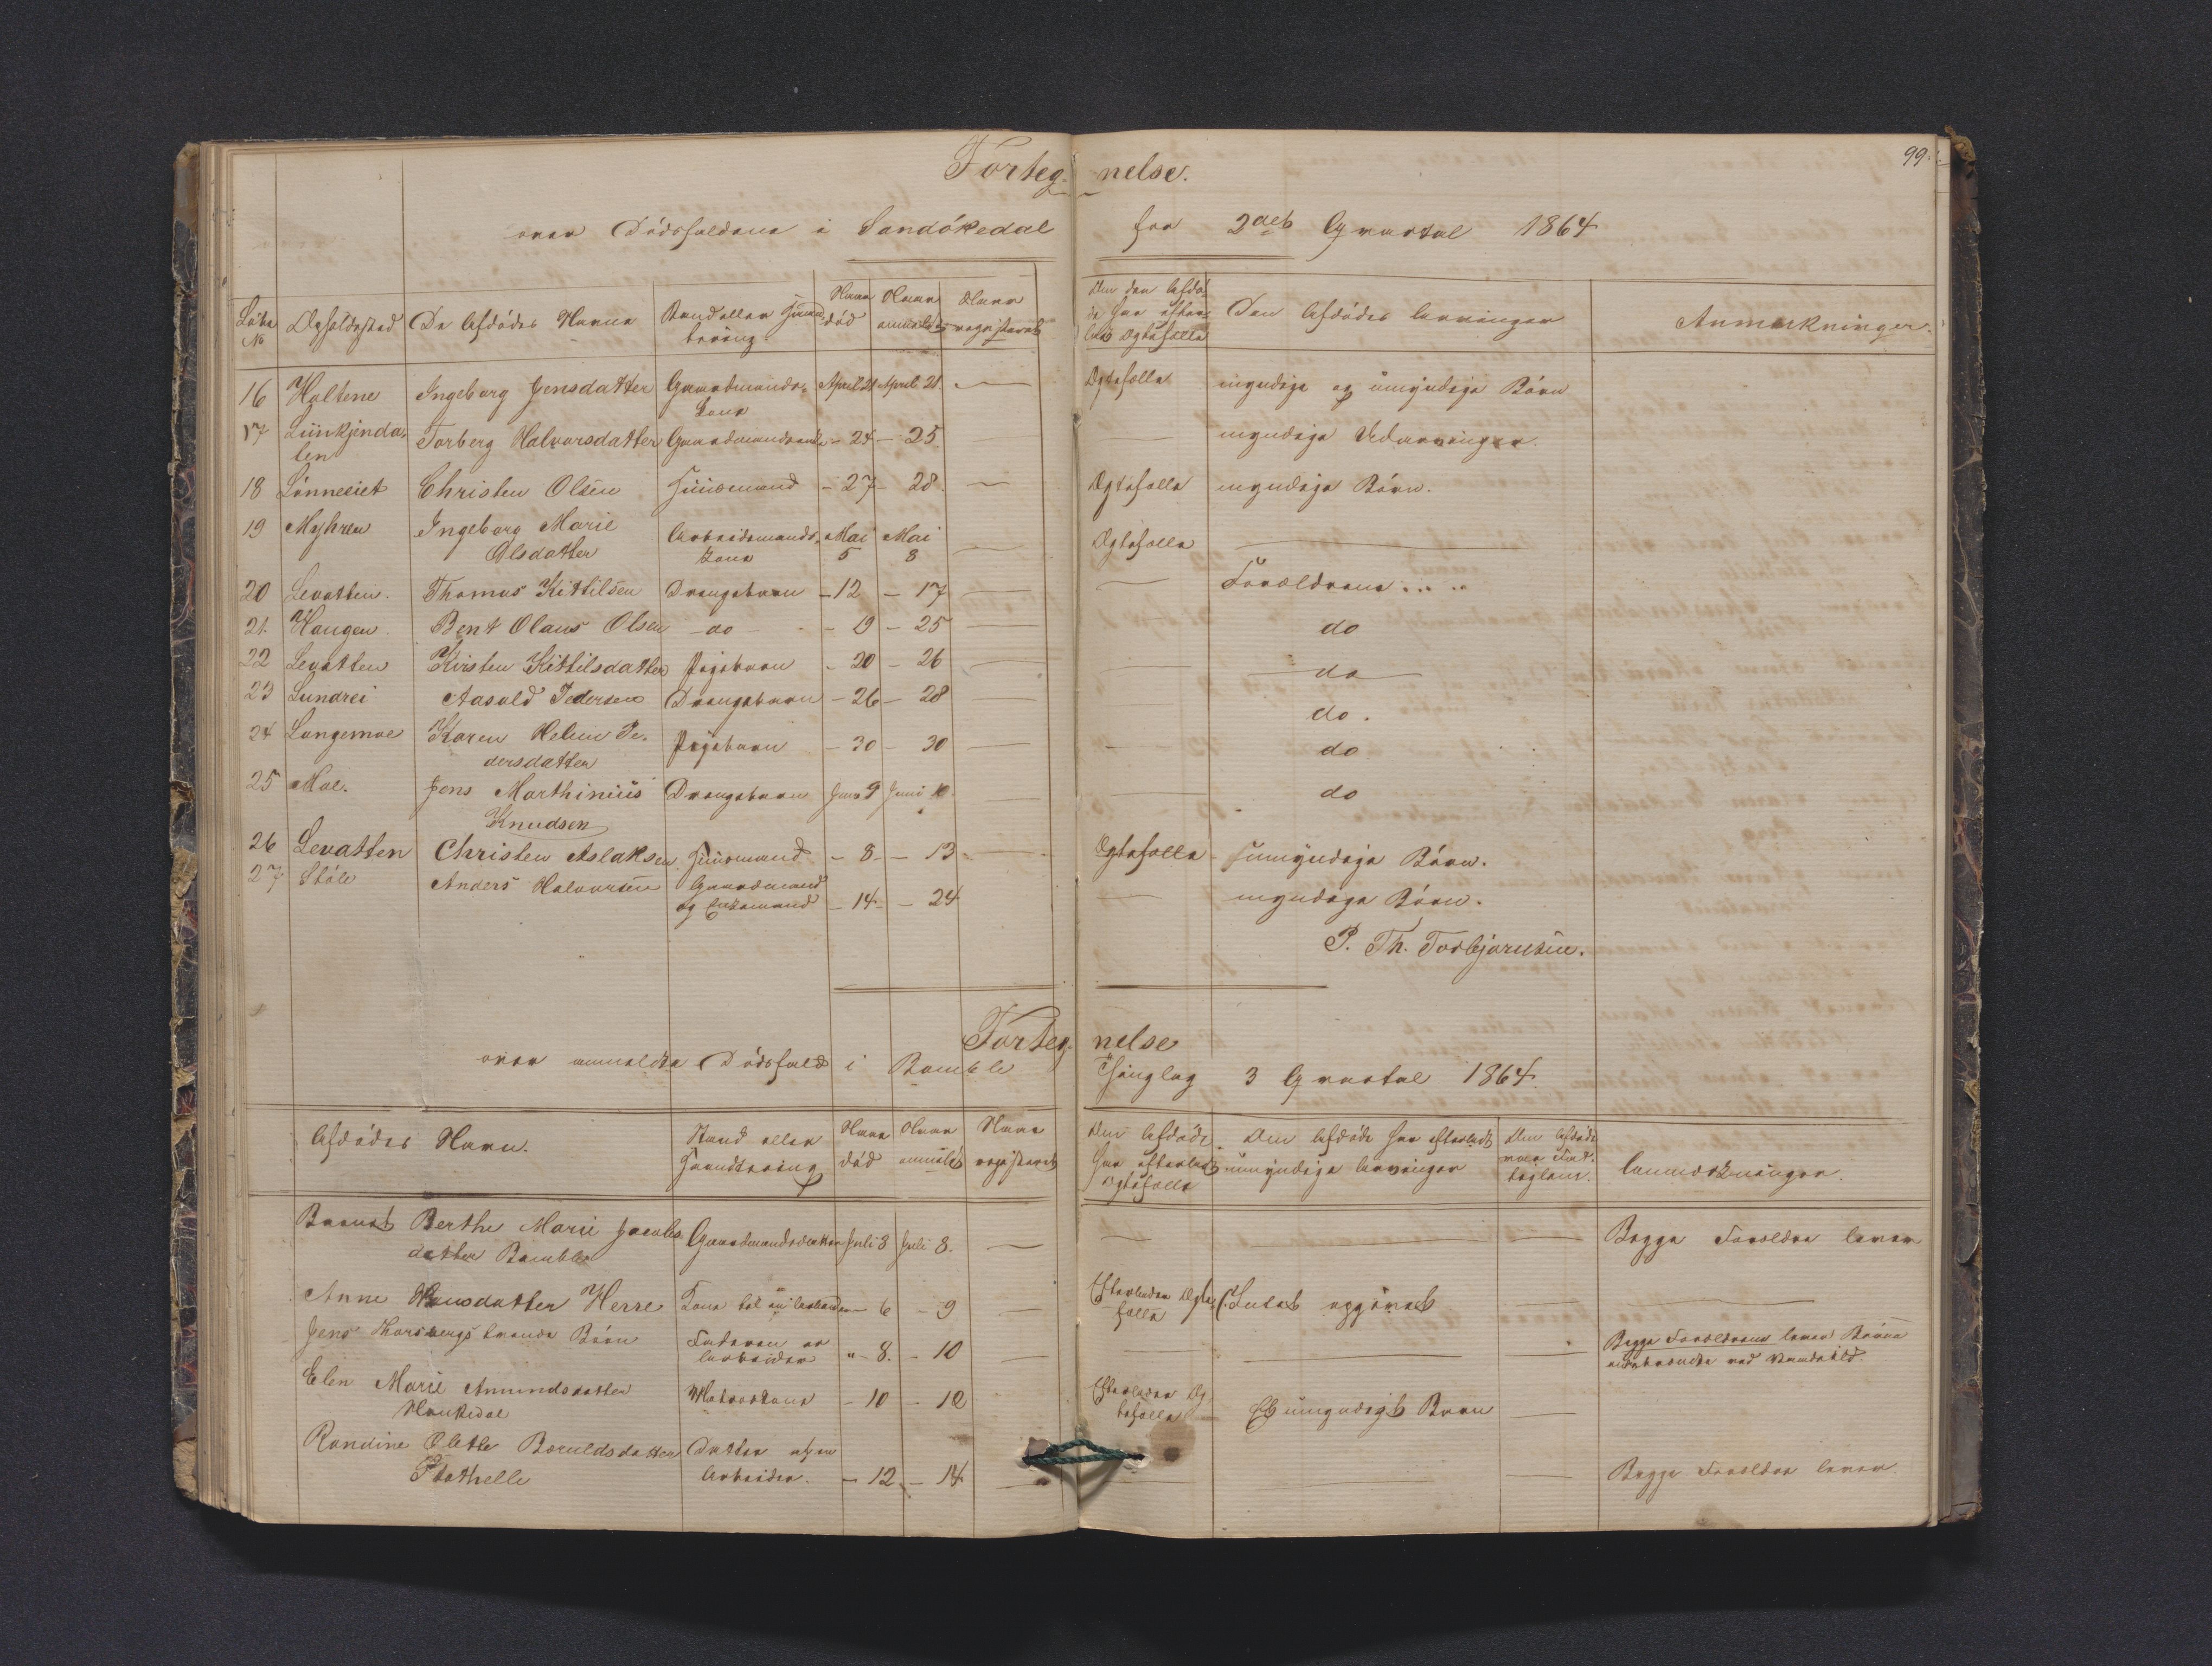 99.
Forteg- nelse.
over Dödsfaldene i Sandökedal for 2det Qvartal 1864
Löbe No | Opholdssted | De Afdödes Navne | Stand eller Handtering | Naar död | Naar anmeldt | Naar registreret | Om den Afdöde har efterladt Ægtefælle | Den Afdödes Arvinger | Anmærkninger.
16 Holtene Ingeborg Jensdatter Gaardmands- Kone April 21 April 21. — Ægtefælle myndige og umyndige Börn
17 Torberg Halvorsdatter Gaardmandsenke - 24 - 25 — myndige Udarvinger.
18 Lönneliet Christen Olsen Huusmand - 27 - 28 — Ægtefælle myndige Börn.
19 Myhren Ingeborg Marie Olsdatter Arbeidsmands- Kone Mai 5 Mai 8 — Ægtefælle —
20 Levatten. Thomas Kittilsen Drengebarn - 12 - 17 — — Forældrene
21. Haugen. Bent Olaus Olsen - do - - 19 - 25 — — do
22 Levatten Kirsten Kittilsdatter Pigebarn - 20 - 26 — — do
23 Lundrei Aasold Pedersen Drengebarn - 26 - 28 — — do.
24 Langemoe Karen Helene Pe- dersdatter Pigebarn - 30 - 30 — — do
25 Moe. Jens Marthinius Knudsen Drengebarn Juni 9 Juni 10. — — do
26 Levatten Christen Aslaksen Huusmand - 8 - - 13 - — Ægtefælle umyndige Börn.
27 Stöle Anders Halvorsen Gaardmand og Enkemand - 14 - - 24 — myndige Börn.
P. Th. Torbjørnsen.
Forteg- nelse
over anmeldte Dödsfald i Bamble Thinglag 3 Qvartal 1864.
Afdödes Navn. | Stand eller Handtering | Naar död | Naar anmeldt | Naar registreret | Om Afdöde har efterladt Ægtefælle | Om Afdöde har efterladt umyndige Arvinger | Om Afdöde var | Anmærkninger.
Barnet Berthe Marie Jacobs datter Bamble Gaardmandsdatter Juli 3 Juli 8. — — — — Begge Forældre lever
Anne Hansdatter Herre Kone til en Arbeider - 6 - 9 — Efterlader Ægte- fælle —
Jens Horsbergs Börn Faderen er Arbeider " 8. - 10 — — — — Begge Forældrene lever Börnene
Elen Marie Amundsdatter Matroskone - 10 - 12 Efterlader Æg- tefælle Et umyndigt Barn —
Randine Olette Baruldsdatter Stathelle Datter af en Arbeider. - 12 - 14 — — — — Begge Forældre lever.